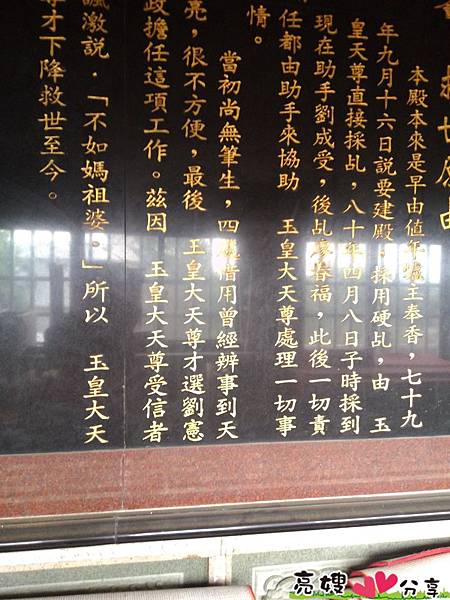 救世原由
本殿本來是早由值年爐主奉香,七十九
年九月十六日說要建殿,採用硬乩,由 玉
皇天尊直接採乩,八十年四月八日子時採到
現在助手劉成受,後乩廖春福,此後一切責
任都由助手來協助 玉皇大天尊處理一切事
情。
當初尚無筆生,四處借用曾經辦事到天
亮,很不方便,最後 玉皇大天尊才選劉憲
政擔任這項工作。茲因 玉皇大天尊受信者
諷激說.「不如媽祖婆。」所以 玉皇大天
尊才下降救世至今。
亮嫂 分享